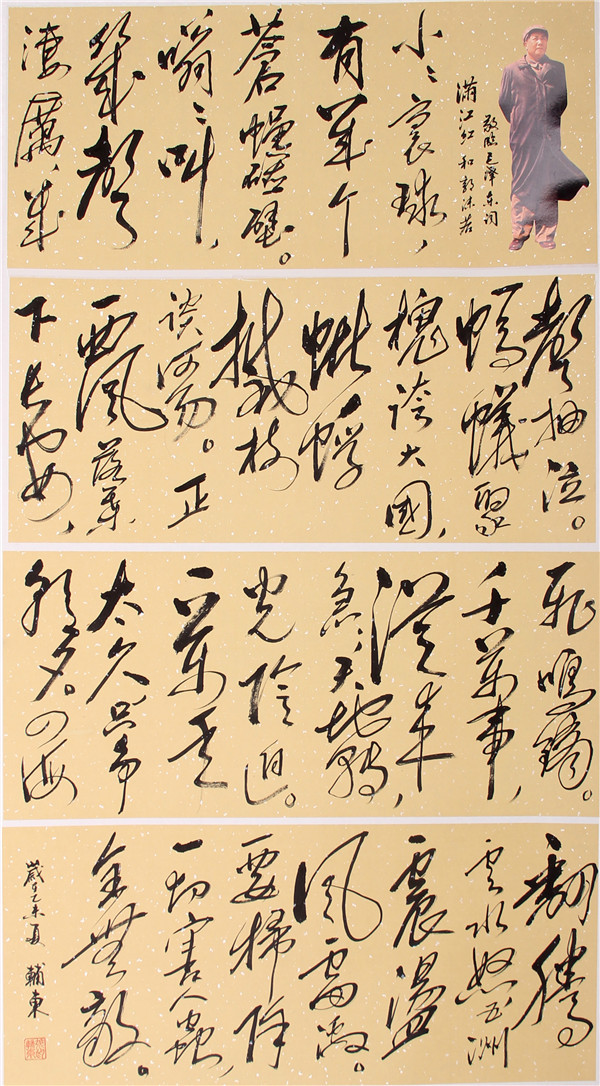 敬临毛泽东词
满江红 和郭沫若
小々寰球,
有幾个
蒼蠅碰壁。
嗡々叫,
幾聲
淒厲,幾
聲抽泣。
螞蟻
槐誇大國,
蚍蜉
撼樹
談何易。正
西風落葉
下長安,
飛鳴鏑。
千萬事,
從來
急,天地轉,
光陰迫。
一萬年
太久只争
朝夕。四海
翻騰
雲水怒五洲
震盪
風雷激。
要掃除
一切害人蟲,
全無敵。
歲在乙未夏 輔東